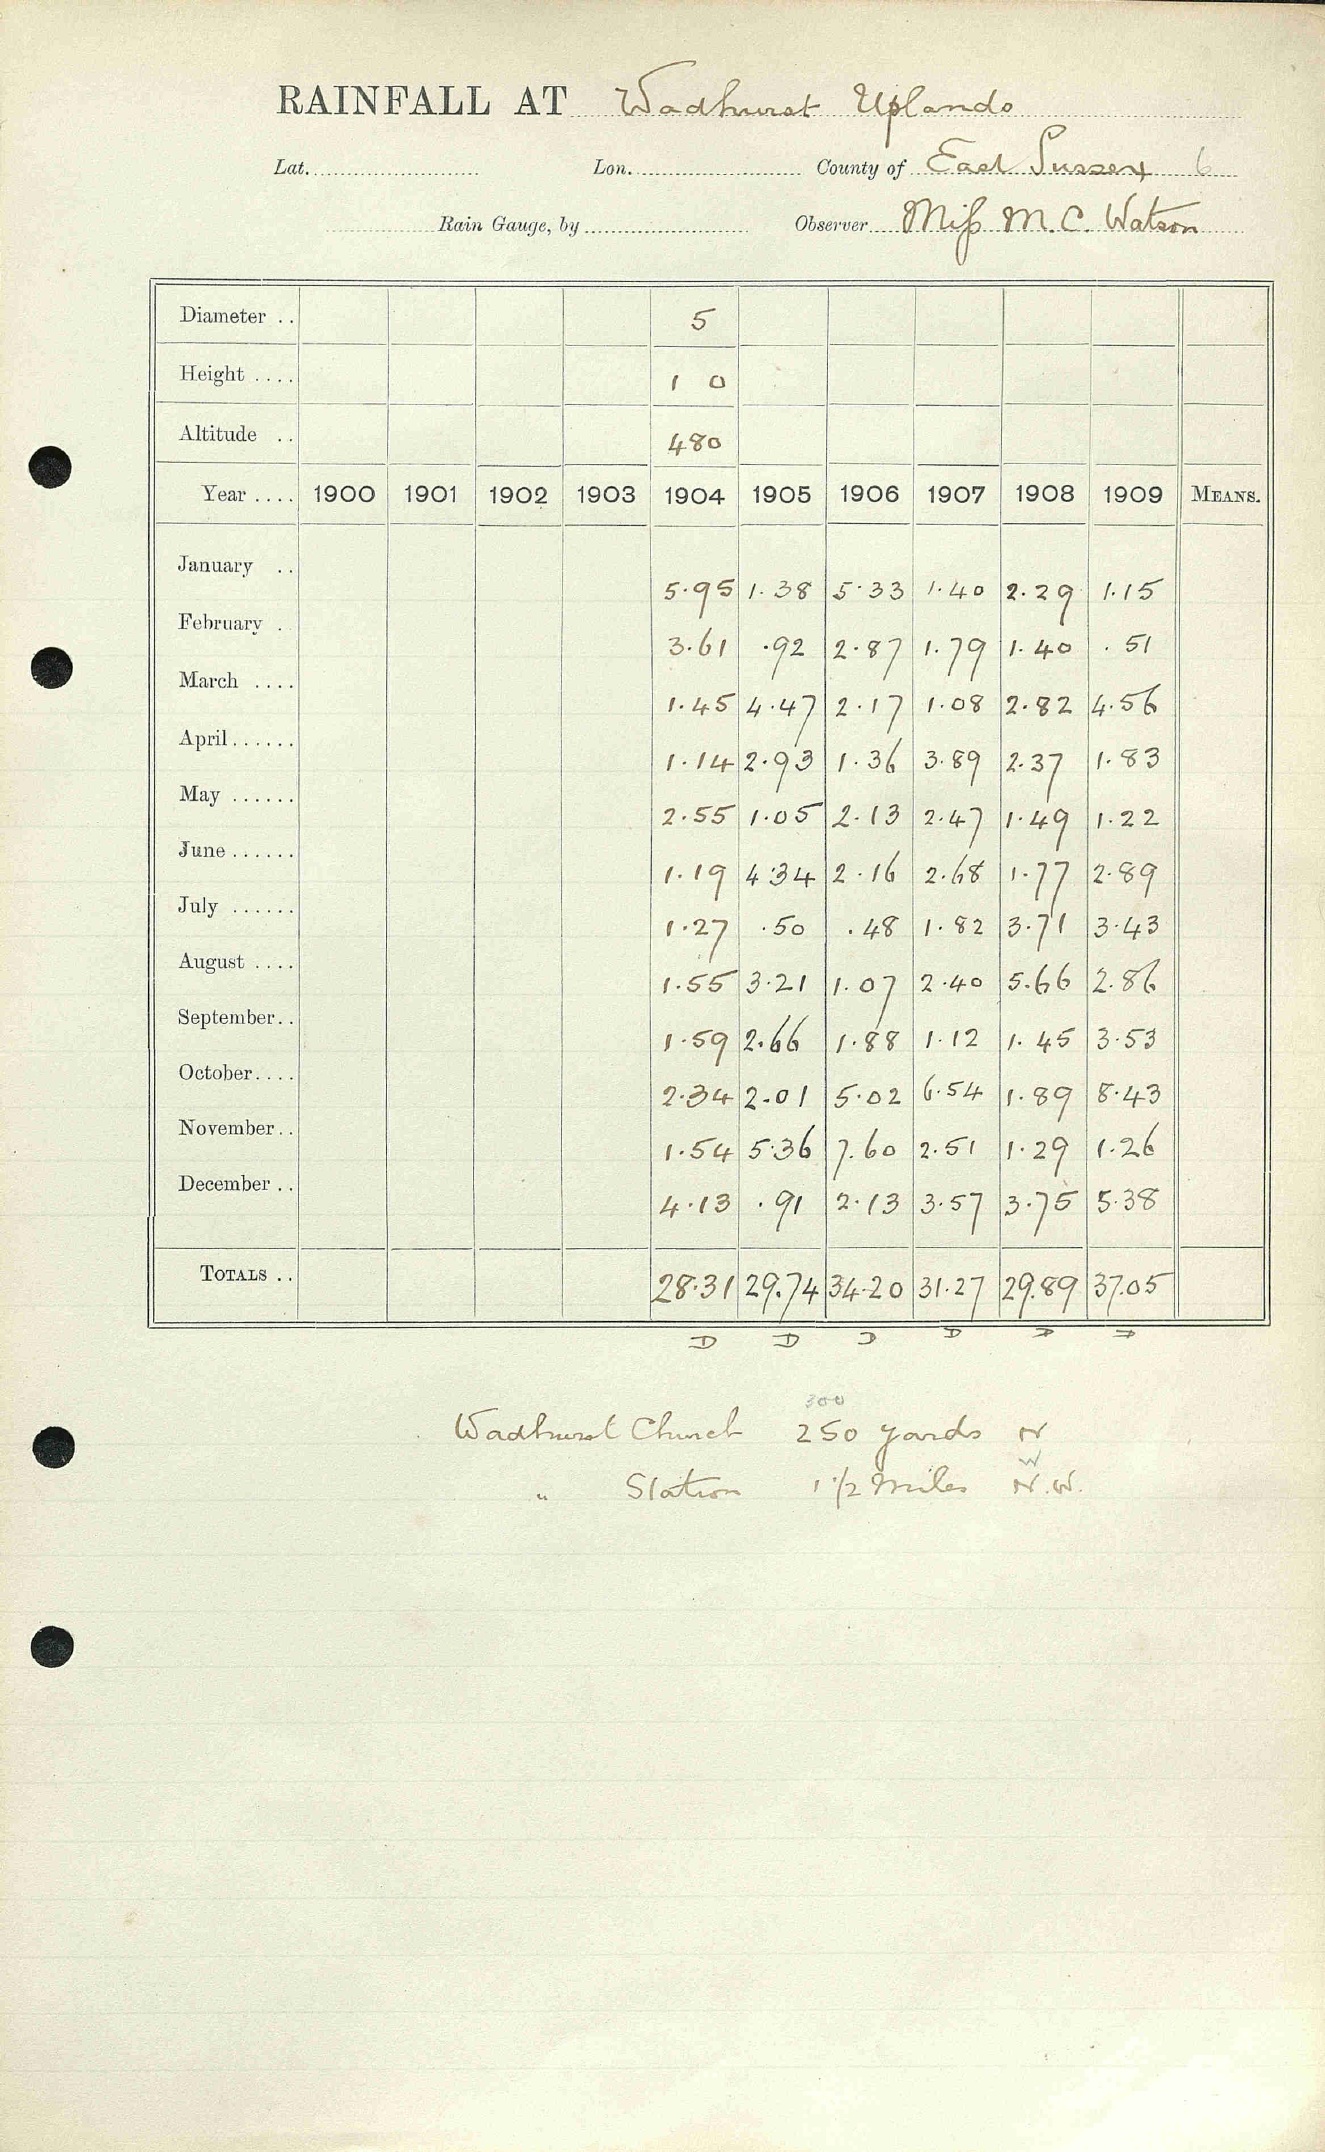 RAINFALL AT Wadhurst Uplands
Lat. Lon. County of East Sussex 6
Rain Gauge, by Observer Miss M. C. Watson
Diameter .. 5
Height .... 1 0
Altitude .. 480
Year .... 1900 1901 1902 1903 1904 1905 1906 1907 1908 1909 MEANS.
January .. 5.95 1.38 5.33 1.40 2.29 1.15
February . 3.61 .92 2.87 1.79 1.40 .51
March .... 1.45 4.47 2.17 1.08 2.82 4.56
April ...... 1.14 2.93 1.36 3.89 2.37 1.83
May ...... 2.55 1.05 2.13 2.47 1.49 1.22
June ...... 1.19 4.34 2.16 2.68 1.77 2.89
July ...... 1.27 .50 .48 1.82 3.71 3.43
August .... 1.55 3.21 1.07 2.40 5.66 2.86
September.. 1.59 2.66 1.88 1.12 1.45 3.53
October.... 2.34 2.01 5.02 6.54 1.89 8.43
November.. 1.54 5.36 7.60 2.51 1.29 1.26
December .. 4.13 .91 2.13 3.57 3.75 5.38
TOTALS .. 28.31 29.74 34.20 31.27 29.89 37.05
D D D D D D
300
Wadhurst Church 250 yards N
W
" Station 1 1/2 Miles N.W.